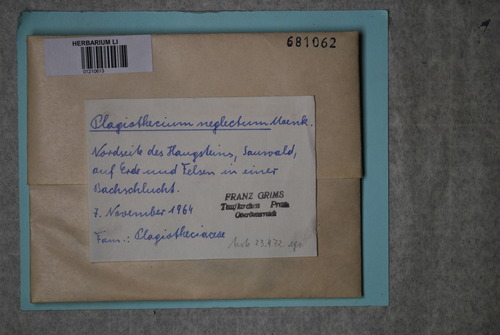 HERBARIUM LI
681062
Plagiothecium neglectum Moenk.
Nordseite des Haugsteins, Sauwald,
auf Erde und Felsen in einer
Bachschlucht.
FRANZ GRIMS
Taufkirchen Pram
Oberösterreich
7. November 1964
Fam.: Plagiotheciaceae